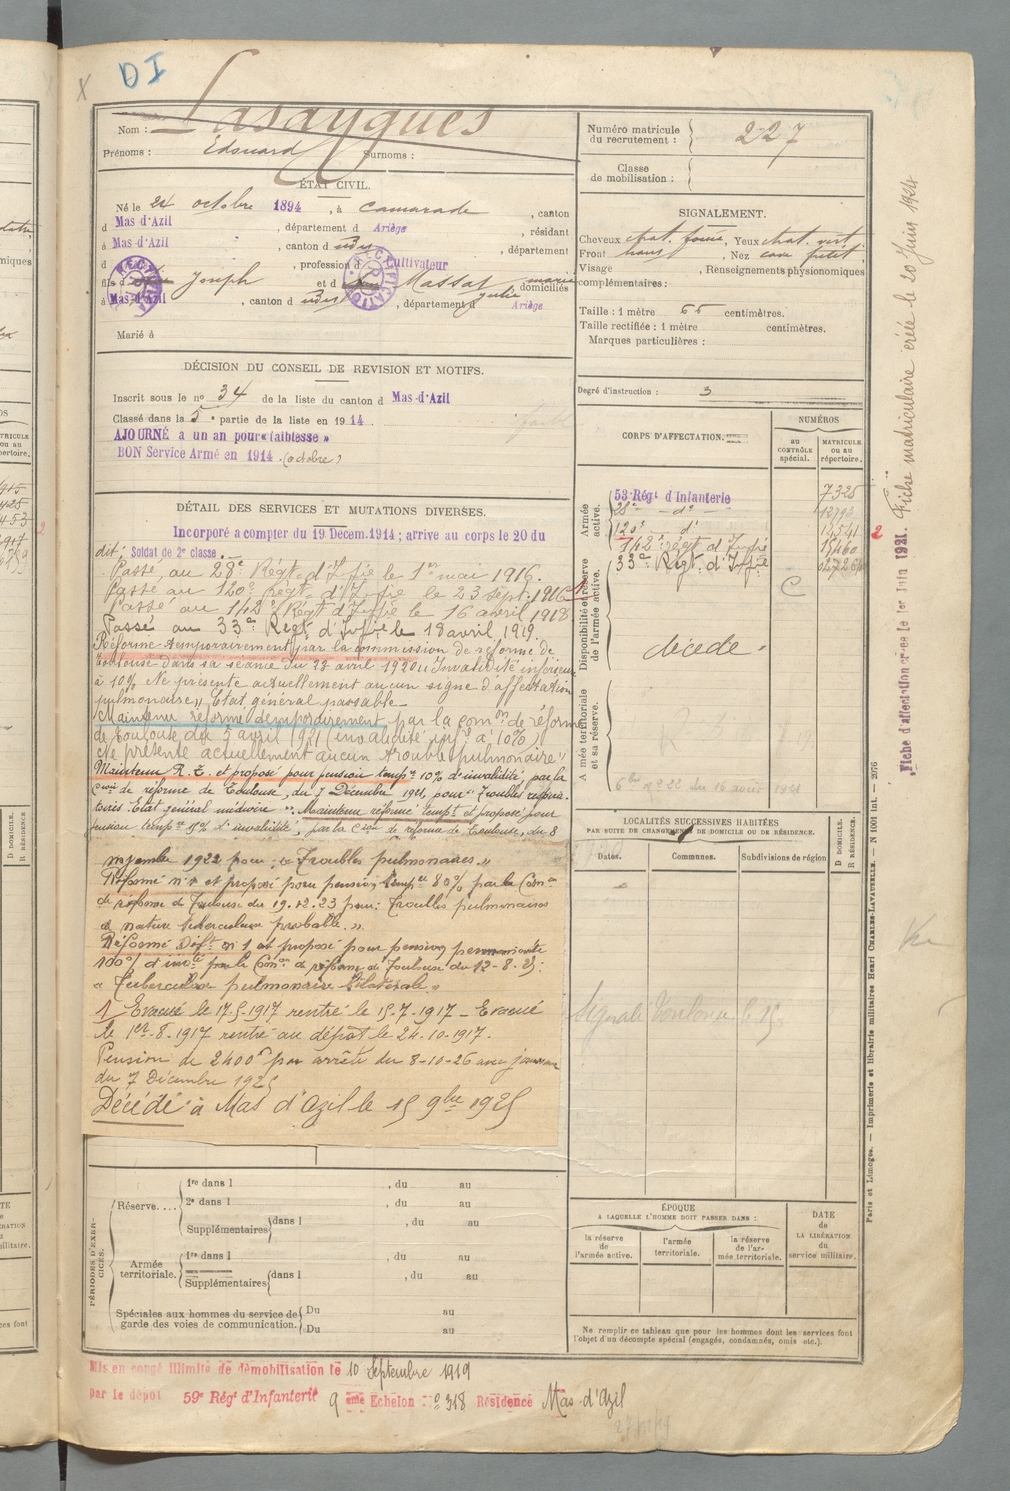 DI
Nom : Lasaygues
Prénoms : Edouard Surnoms :
ÉTAT CIVIL.
Né le 24 octobre 1894, à Camarade, canton
d Mas-d'Azil, département d Ariège, résidant
à Mas-d'Azil, canton d udit, département
d, profession d Cultivateur
fils d Joseph et d Massat marie julie domiciliés
à Mas-d'Azil, canton d udit, département d Ariège
RECTIFICATION
RECTIFICATION
Marié à
DÉCISION DU CONSEIL DE REVISION ET MOTIFS.
Inscrit sous le no 34 de la liste du canton d Mas-d'Azil
Classé dans la 5e partie de la liste en 1914.
AJOURNÉ à un an pour « faiblesse »
BON Service Armé en 1914 (octobre)
DÉTAIL DES SERVICES ET MUTATIONS DIVERSES.
Incorporé à compter du 19 Décem. 1914 ; arrivé au corps le 20 du
dit, Soldat de 2e classe.
Passé au 28e Régt d'Ifie le 1er mai 1916.
Passé au 120e Régt d'Ifie le 23 sept. 1916
Passé au 142e Régt d'Ifie le 16 avril 1918
Passé au 33e Régt d'Ifie le 18 avril 1919.
Réformé temporairement par la commission de réforme de
Toulouse dans sa séance du 28 avril 1920 « Invalidité inférieure
à 10% Ne présente actuellement aucun signe d'affectation
pulmonaire » Etat général passable
Maintenu réformé temporairement par la comon de réforme
de Toulouse du 7 avril 1921 (invalidité infre à 10%)
« Ne présente actuellement aucun trouble pulmonaire »
Maintenu R. T. et proposé pour pension tempre 10% d'invalidité, par la
Cion de réforme de Toulouse, du 7 Décembre 1921, pour « Troubles respira-
toires. Etat général médiocre ». Maintenu réformé tempt et proposé pour
pension tempre d'invalidité, par la Cion de réforme de Toulouse, du 8
novembre 1922 pour : « Troubles pulmonaires. »
Réformé n° 1 et proposé pour pension tempre 80% par la Comon
de réforme de Toulouse du 19.12.23 pour : Troubles pulmonaires
de nature tuberculeuse probable. »
Réformé Déft n° 1 et proposé pour pension permanente
100% d'invté par la Comon de réforme de Toulouse du 12-8-25 :
« Tuberculose pulmonaire bilatérale »
1 Evacué le 17-5-1917 rentré le 15-7-1917 - Evacué
le 1er-8-1917 rentré au dépôt le 24-10-1917.
Pension de 2400f par arrêté du 8-10-26 avec jouissance
du 7 Décembre 1925
Décédé à Mas d'Azil le 15 9bre 1925
PÉRIODES D'EXERCICES.
Réserve.... 1re dans l, du au
2e dans l, du au
Supplémentaires dans l, du au
Armée territoriale. 1re dans l, du au
Supplémentaires dans l, du au
Spéciales aux hommes du service de garde des voies de communication. Du au
Du au
Mis en congé illimité de démobilisation le 10 Septembre 1919
par le dépôt 59e Régt d'Infanterie 9 ème Echelon n° 318 Résidence Mas-d'Azil
Numéro matricule du recrutement : 227
Classe de mobilisation :
SIGNALEMENT.
Cheveux chat. foncé, Yeux chat. vert
Front haut, Nez cave petit
Visage, Renseignements physionomiques
complémentaires :
Taille : 1 mètre 65 centimètres.
Taille rectifiée : 1 mètre centimètres.
Marques particulières :
Degré d'instruction : 3
CORPS D'AFFECTATION.
NUMÉROS
au CONTRÔLE spécial.
MATRICULE OU AU répertoire.
Armée active.
53 Régt d'Infanterie 7325
28e - d°
120e d° 13541
142e régt d'Infie 15460
33e Régt d'Infie
2
Disponibilité et réserve de l'armée active.
C
décédé.
Armée territoriale et sa réserve.
LOCALITÉS SUCCESSIVES HABITÉES
PAR SUITE DE CHANGEMENTS DE DOMICILE OU DE RÉSIDENCE.
Dates. Communes. Subdivisions de région
D DOMICILE.
R RÉSIDENCE.
Signalé Toulouse
ÉPOQUE
A LAQUELLE L'HOMME DOIT PASSER DANS :
la réserve de l'armée active. l'armée territoriale. la réserve de l'armée territoriale.
DATE de LA LIBÉRATION du service militaire.
Ne remplir ce tableau que pour les hommes dont les services font
l'objet d'un décompte spécial (engagés, condamnés, omis etc.).
Paris et Limoges. — Imprimerie et librairie militaires Henri CHARLES-LAVAUZELLE. — N 1001 Int. — 2076
Fiche d'affectation créée le 1er Juin 1921. Fiche matriculaire créée le 20 Juin 1924